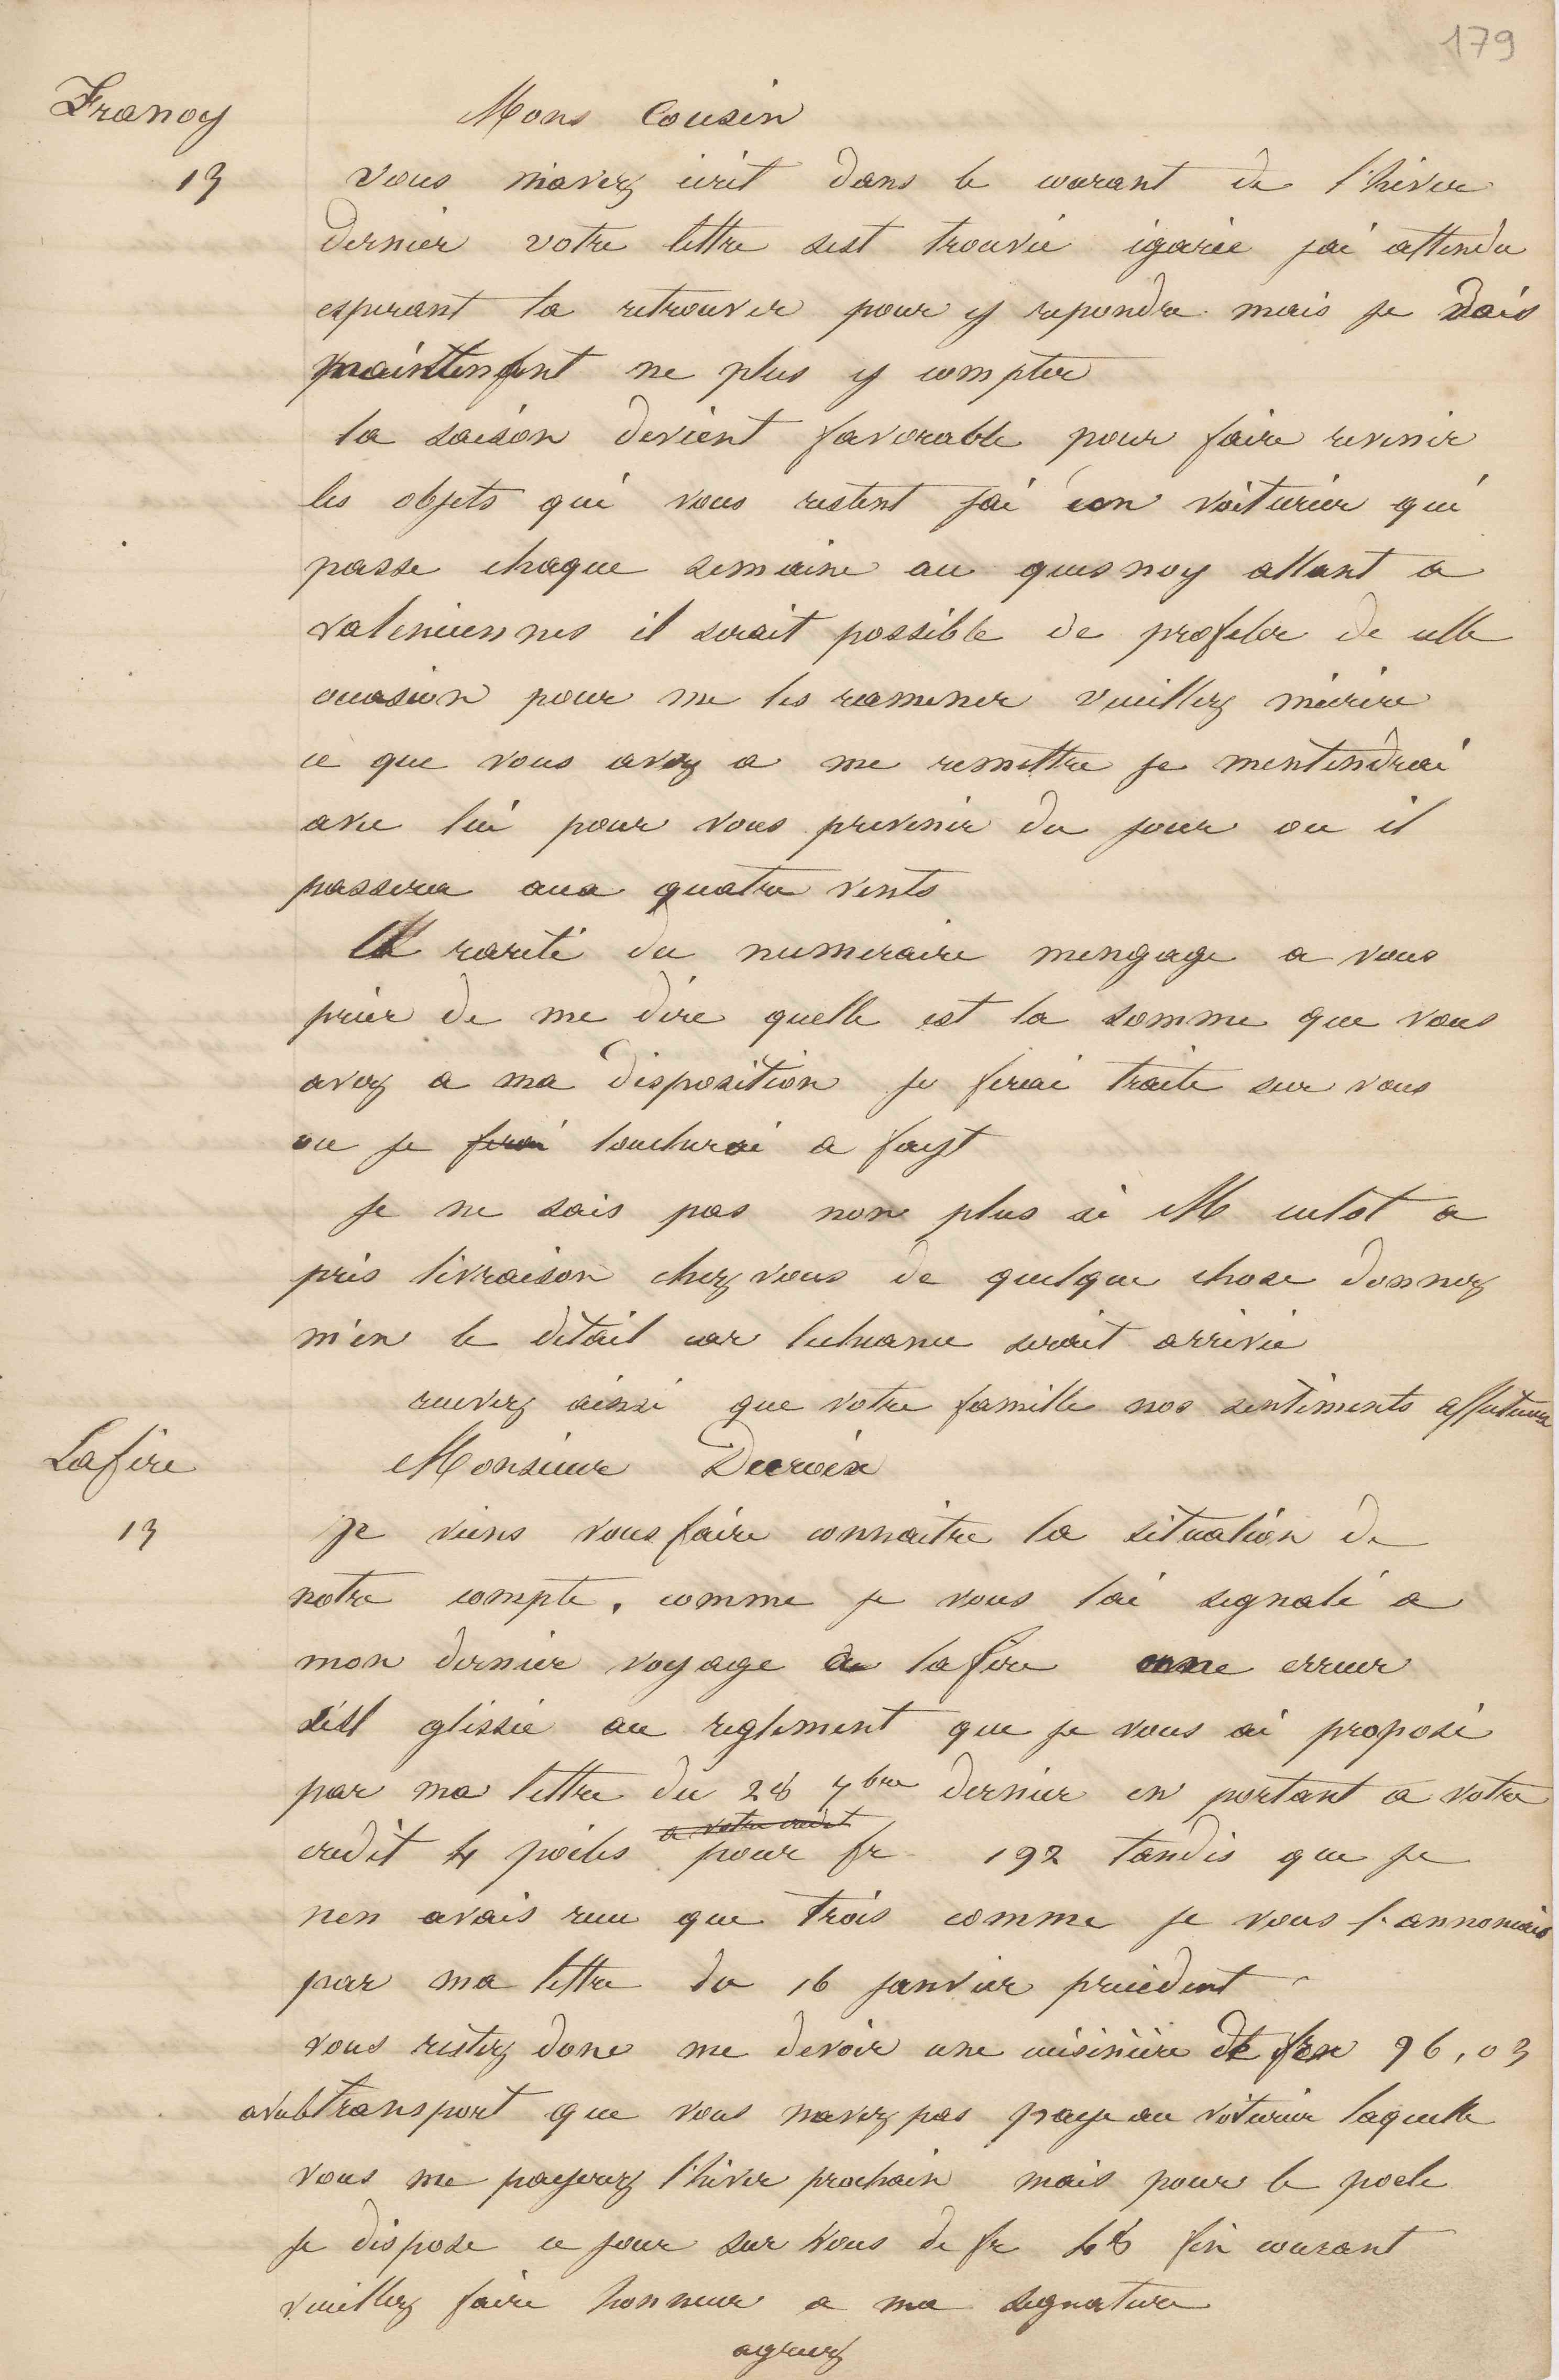 179
Franoy
Mons Cousin
13
vous mavez écrit dans le courant de l'hiver
dernier votre lettre sest trouvée égarée jai attendu
esperant la retrouver pour y repondre mais je dois
maintenant ne plus y compter
la saison devient favorable pour faire revenir
les objets qui vous restent jai un voiturier qui
passe chaque semaine au quesnoy allant a
valenciennes il serait possible de profiter de cette
occasion pour me les ramener veuillez mécrire
ce que vous avez a me remettre je mentendrai
avec lui pour vous prevenir du jour ou il
passera aux quatre vents
la rareté du numeraire mengage a vous
prier de me dire quelle est la somme que vous
avez a ma disposition je ferai traite sur vous
ou je ferai toucherai a fayt
je ne sais pas non plus si M culot a
pris livraison chez vous de quelque chose donnez
m'en le détail car lecheance serait arrivée
recevez ainsi que votre famille nos sentiments affectueux
Lafère
Monsieur Decroix
13
je viens vous faire connaitre la situation de
notre compte. comme je vous lai signalé a
mon dernier voyage a lafère une erreur
s'est glissée au reglement que je vous ai proposé
par ma lettre du 28 7bre dernier en portant a votre
a votre credit
credit 4 poëles pour fr 192 tandis que je
nen avais recu que trois comme je vous l'annoncais
par ma lettre du 16 janvier précédent
vous restez donc me devoir une cuisinière de fr 96,03
avec le transport que vous navez pas payé au voiturier laquelle
vous me payerez l'hiver prochain mais pour le poele
je dispose ce jour sur vous de fr 48 fin courant
veuillez faire honneur a ma signature
agreez